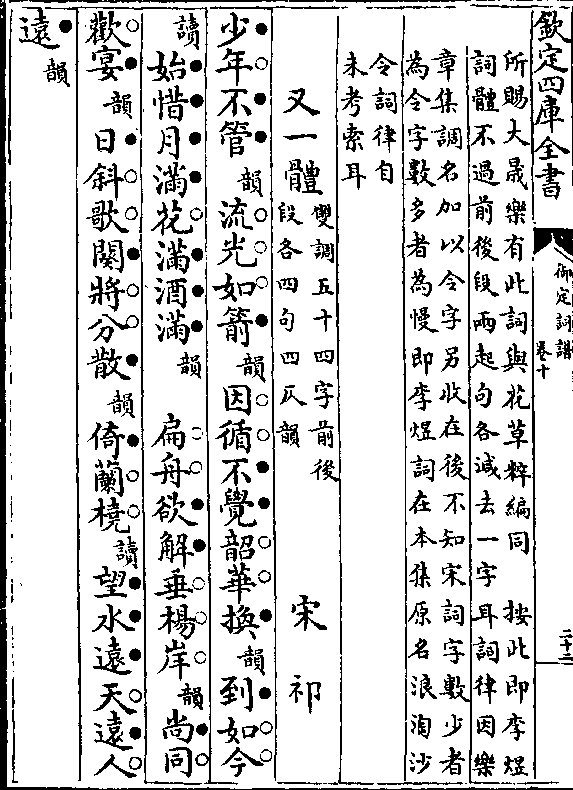 欽定四庫全書
御定詞譜
卷十
二十二
所賜大晟樂有此詞與花草粹編同　按此即李煜
詞體不過前後段兩起句各減去一字耳詞律因樂
章集調名加以令字另收在後不知宋詞字數少者
為令字數多者為慢即李煜詞在本集原名浪淘沙
令詞律自
未考索耳
又一體
雙調五十四字前後
段各四句四仄韻
宋祁
少年不管韻流光如箭韻因循不覺韶華換韻到如今
讀始惜月滿花滿酒滿韻　扁舟欲解垂楊岸韻尚同
歡宴韻日斜歌闋將分散韻倚蘭橈讀望水遠天遠人
遠韻